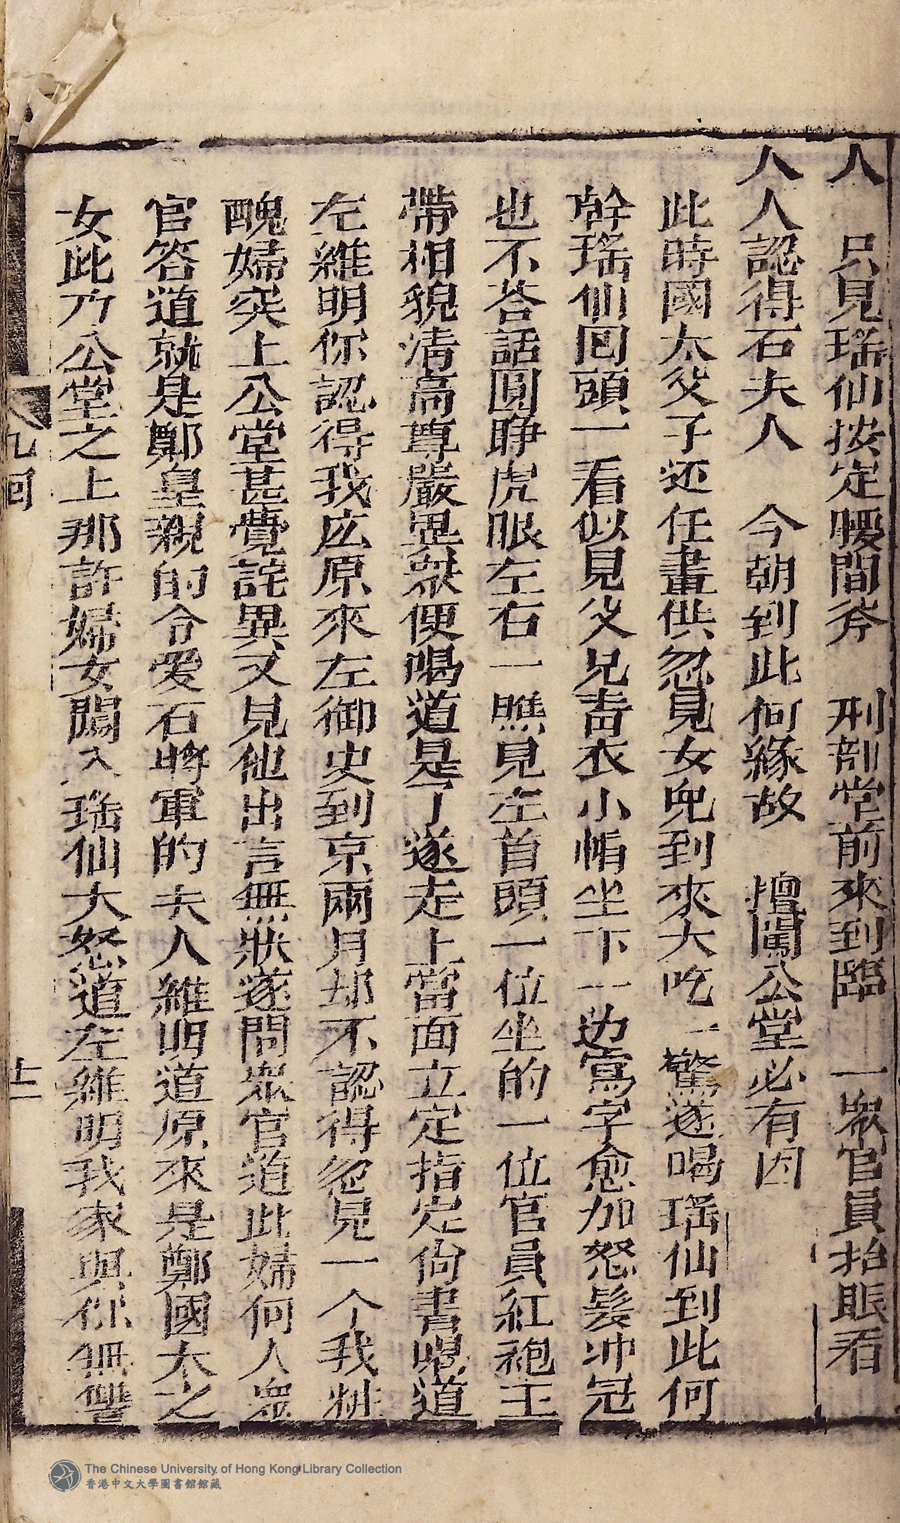 人　只見瑤仙按定腰間斧　刑部堂前來到臨　一衆官員抬眼看
人人認得石夫人　今朝到此何緣故　擅闖公堂必有因
此時國太父子还在畫供忽見女兒到來大吃一驚遂喝瑤仙到此何
幹瑤仙囬頭一看似見父兄靑衣小帽坐下一边寫字愈加怒髮冲冠
也不荅話圓睁虎眼左右一瞧見左首頭一位坐的一位官員紅袍玉
帶相貌清高尊嚴異衆便喝道是了遂走上當面立定指定尙書喝道
左維明你認得我庅原來左御史到京兩月却不認得忽見一个
醜婦突上公堂甚覺詫異又見他出言無狀遂問衆官道此婦何人衆
官答道就是鄭皇親的令爱石將軍的夫人維明道原來是鄭國太之
女此乃公堂之上那許婦女闖入瑤仙大怒道左維明我家與你無讐
九囘
十二
The Chinese University of Hong Kong Library Collection
香港中文大學圖書館館藏